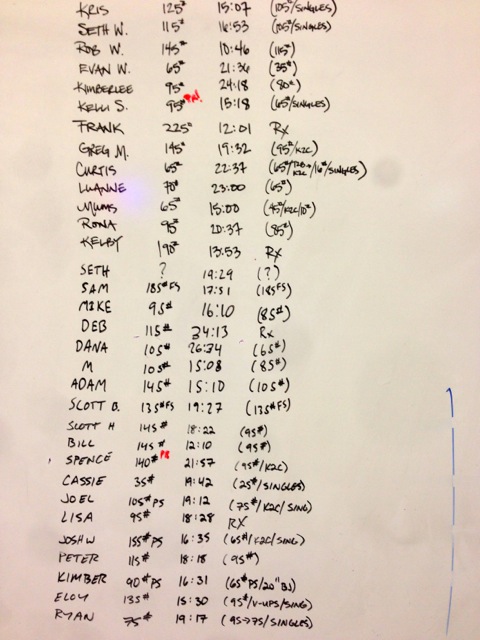 KRIS 125# 15:07 (105#/SINGLES)
SETH W. 115# 16:53 (105#/SINGLES)
ROB W. 145# 10:46 (115#)
EVAN W. 65# 21:36 (35#)
KIMBERLEE 95# 24:18 (80#)
KELLI S. 95# PR! 15:18 (65#/SINGLES)
FRANK 225# 12:01 Rx
GREG M. 145# 19:32 (95#/K2C)
CURTIS 65# 22:37 (65#/K2C/16#/SINGLES)
LUANNE 70# 23:00 (65#)
MUMS 65# 15:00 (45#/K2C/10#)
RONA 95# 20:37 (85#)
KELBY 190# 13:53 Rx
SETH ? 19:29 (?)
SAM 185#FS 17:51 (185#FS)
MIKE 95# 16:10 (85#)
DEB 115# 34:13 Rx
DANA 105# 26:34 (65#)
M 105# 15:08 (85#)
ADAM 145# 15:10 (105#)
SCOTT B. 135#FS 19:27 (135#FS)
SCOTT H 145# 18:22 (95#)
BILL 145# 12:10 (95#)
SPENCE 140# PR 21:57 (95#/K2C)
CASSIE 35# 19:42 (25#/SINGLES)
JOEL 105#PS 19:12 (75#/K2C/SING)
LISA 95# 18:28 RX
JOSH W 155#PS 16:35 (65#/K2C/SING)
PETER 115# 18:18 (95#)
KIMBER 90#PS 16:31 (65#PS/20"BJ)
ELOY 135# 15:30 (95#/V-UPS/SING)
RYAN 75# 19:17 (95→75/SINGLES)